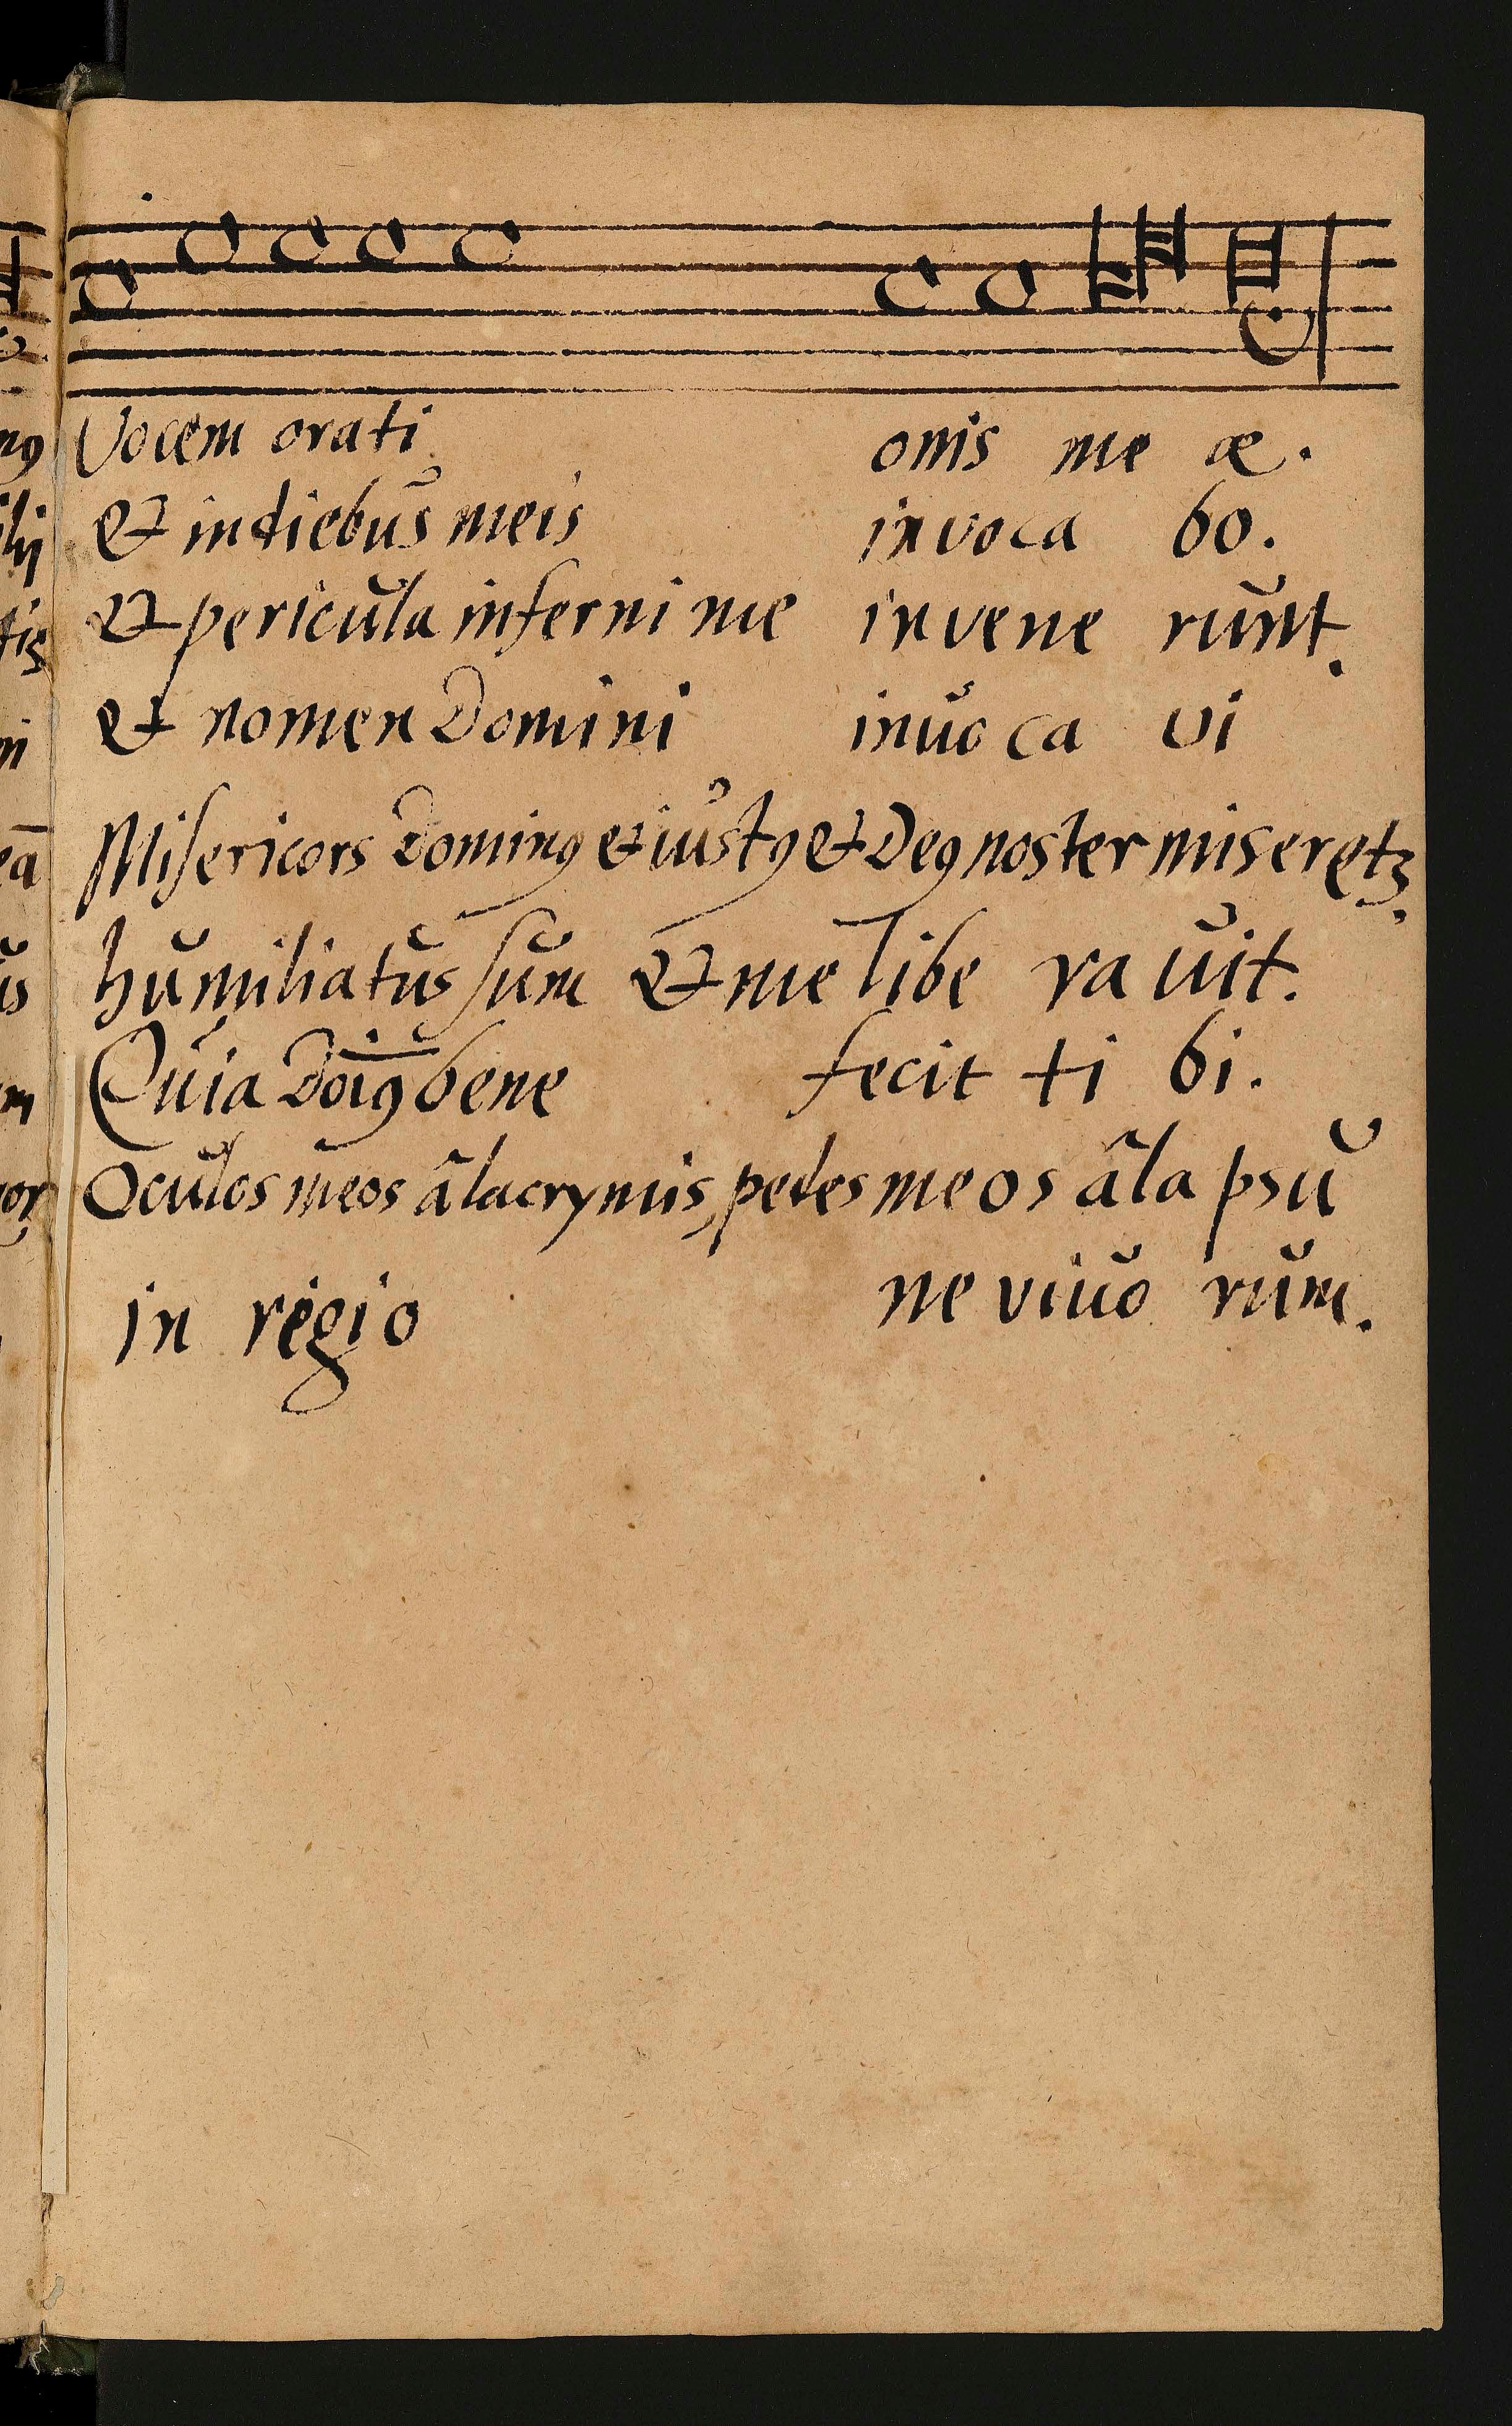 Vocem orati onis me æ.
& in diebus meis invoca bo.
& pericula inferni me invene runt.
& nomen Domini inuo ca vi
Misericors Dominꝰ & iustꝰ & Deꝰ noster miseretꝫ.
humiliatus sum & me libe ra uit.
Quia Doīꝰ bene fecit ti bi.
Oculos meos â lacrymis, pedes meos â la psu
in regio ne viuo rum.